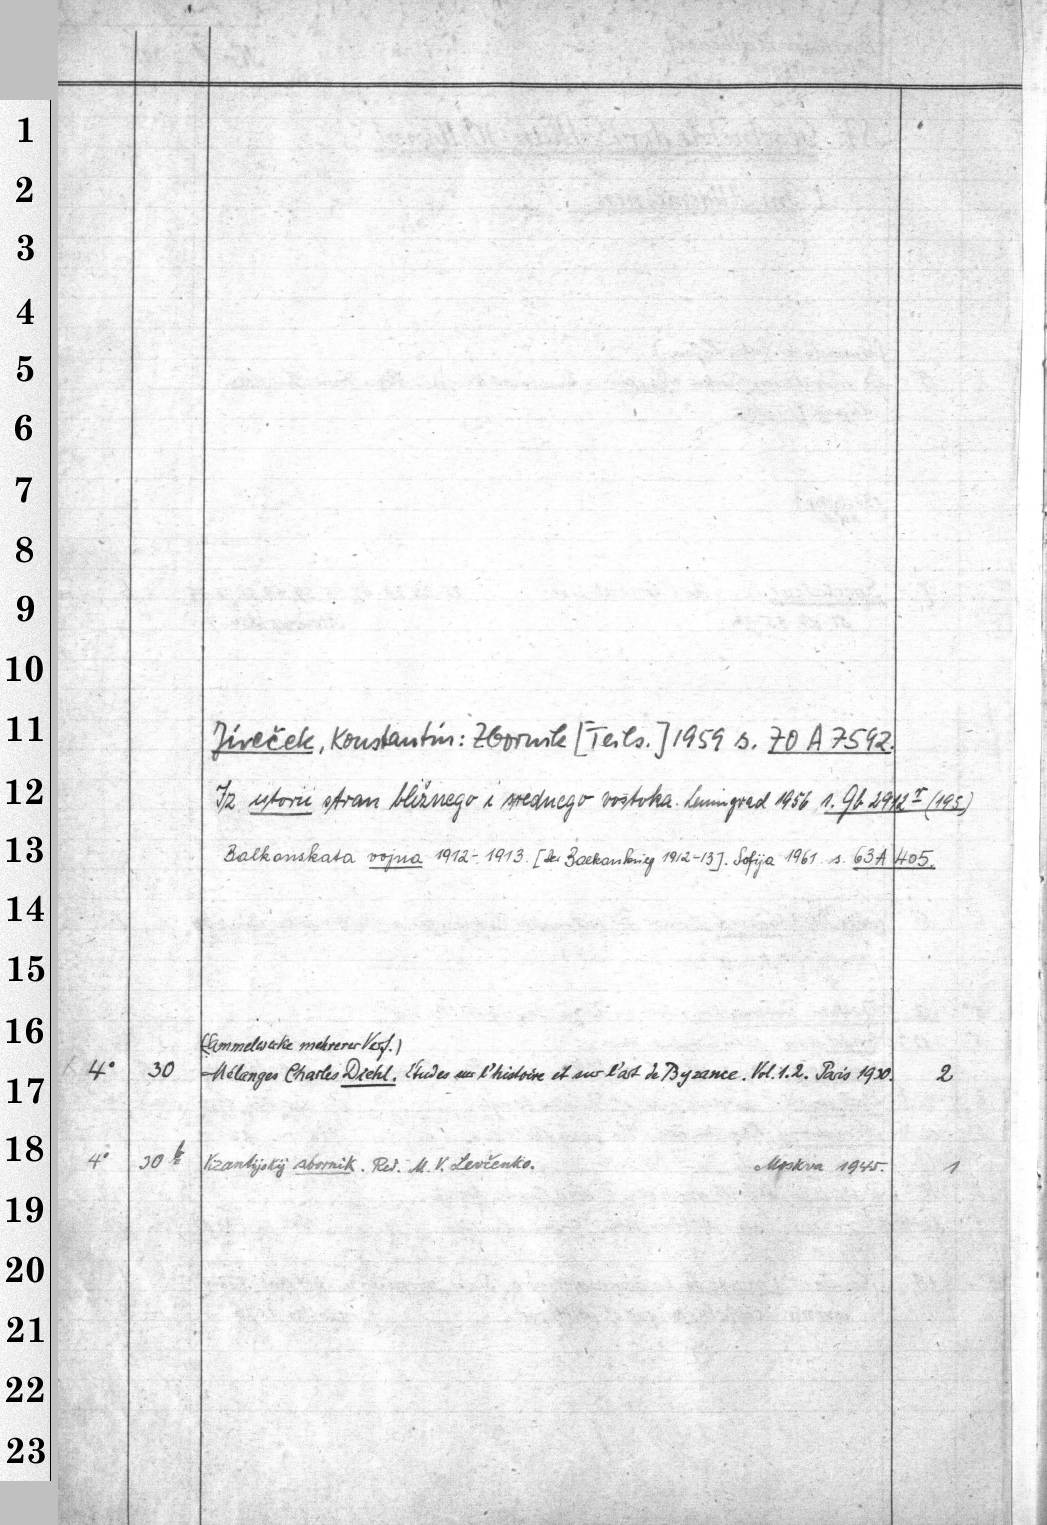 1
2
3
4
5
6
7
8
9
10
11 Jireček, Konstantin: Zbornik [Teils.] 1959 s. 70 A 7592.
12 Iz istorii stran bližnego i srednego vostoka. Leningrad 1956 s. Qb 2912 (195)
13 Balkanskata vojna 1912-1913. [Der Balkankrieg 1912-13]. Sofija 1961 s. 63A 405.
14
15
16 (Sammelwerke mehrerer Verf.)
4° 30 Mélanges Charles Diehl. Études sur l'histoire et sur l'art de Byzance. Vol. 1.2. Paris 1930. 2
17
18 4° 30 b sbornik. Red. M. V. Levčenko. Moskva 1945. 1
19
20
21
22
23